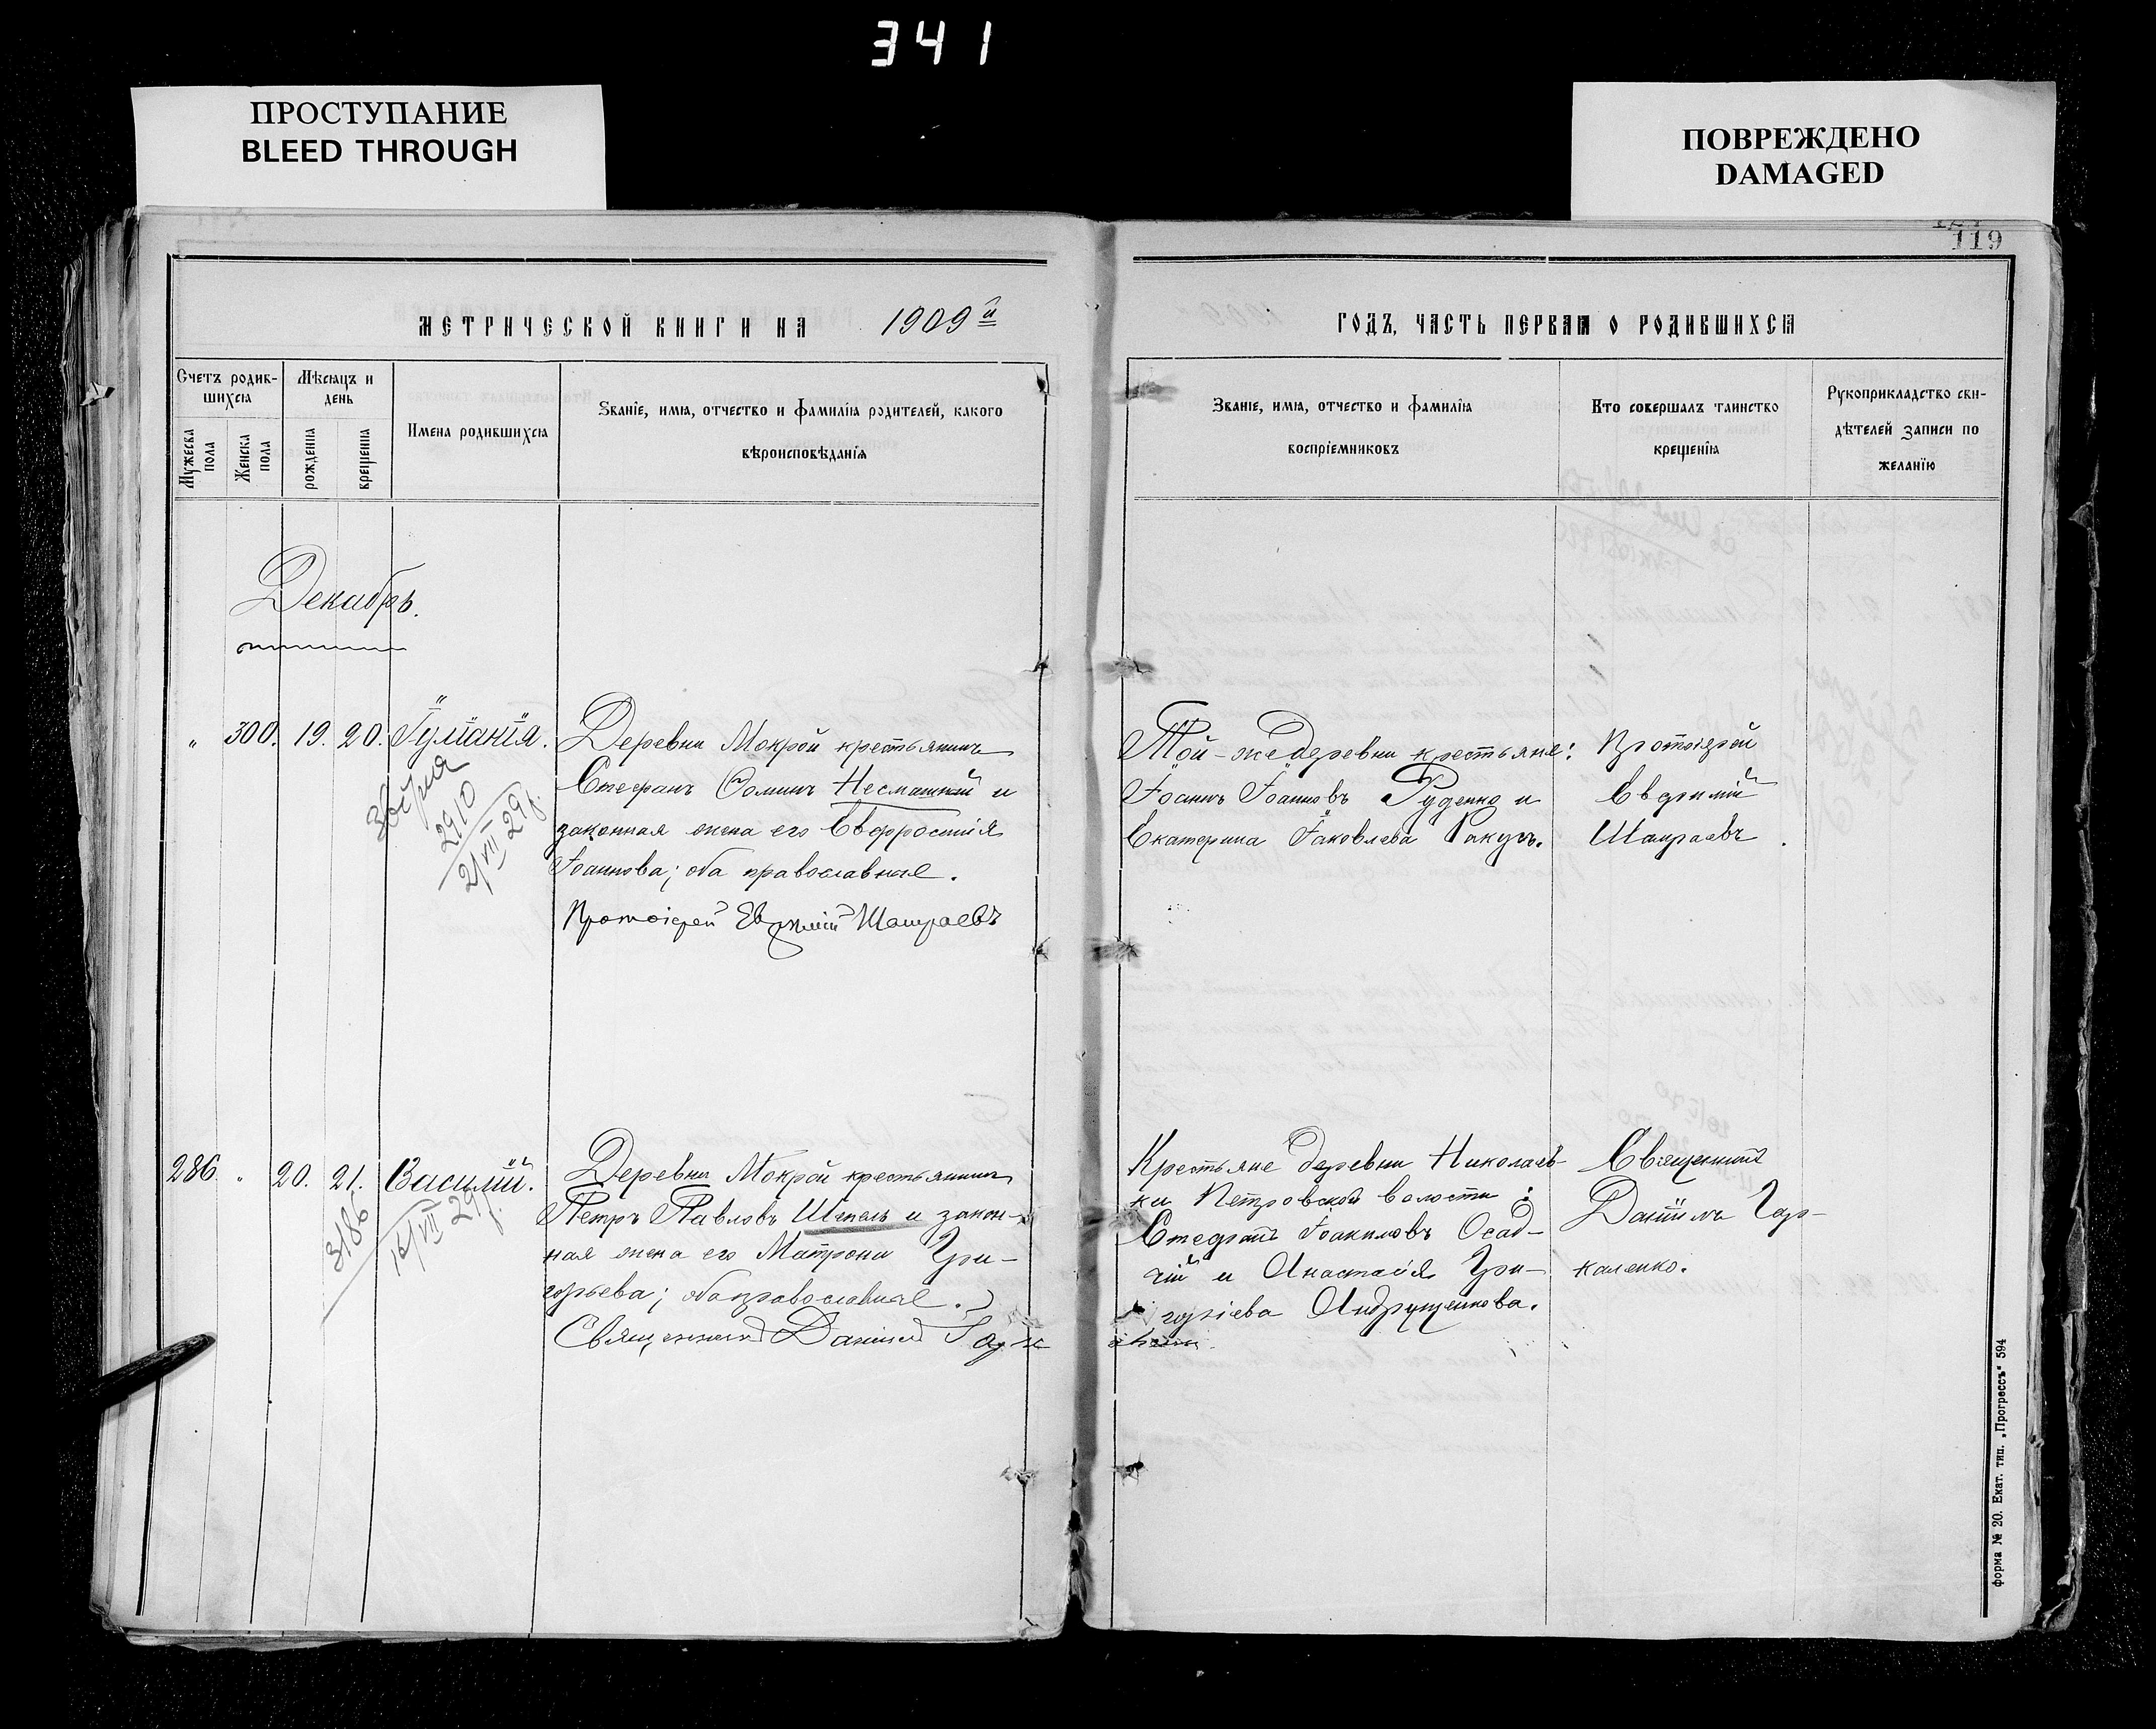 341
ПРОСТУПАНИЕ
BLEED THROUGH
ПОВРЕЖДЕНО
DAMAGED
119
МЕТРИЧЕСКОЙ КНИГИ НА 1909й
ГОДЪ, ЧАСТЬ ПЕРВАЯ О РОДИВШИХСЯ
Счетъ родив-
шихся
Мужеска пола
Женска пола
Мѣсяцъ и
день
рожденіа
крещеніа
Имена родившихся
Званіе, имя, отчество и фамилія родителей, какого
вѣроисповѣданія
Званіе, имя, отчество и фамилія
воспріемниковъ
Кто совершалъ таинство
крещенія
Рукоприкладство сви-
дѣтелей записи по
желанію
Декабрь.
" 300. 19. 20. Іуліанія.
2910
21/VII 29г.
Деревни Мокрой крестьянинъ
Стефанъ Ѳоминъ Несмашный и
законная жена его Евфросинія
Іоаннова; оба православные.
Протоіерей Евфимій Шамраевъ
Той-же деревни крестьяне:
Іоаннъ Іоанновъ Руденко и
Екатерина Іаковлева Ракуть.
Протоіерей
Евфимій
Шамраевъ.
286. " 20. 21. Василій.
3186
16/VII 29г.
Деревни Мокрой крестьянинъ
Петръ Павловъ Шпель и закон-
ная жена его Матрона Гри-
горьева; оба православные.
Священникъ Даніилъ
Крестьяне деревни Николаев-
ки Петровской волости:
Стефанъ Іоакимовъ Осад-
чій и Анастасія Гри-
горіева Андрущенкова.
Священникъ
Даніилъ Гар-
каленко.
форма № 20. Екат. тип. „Прогрессъ" 594